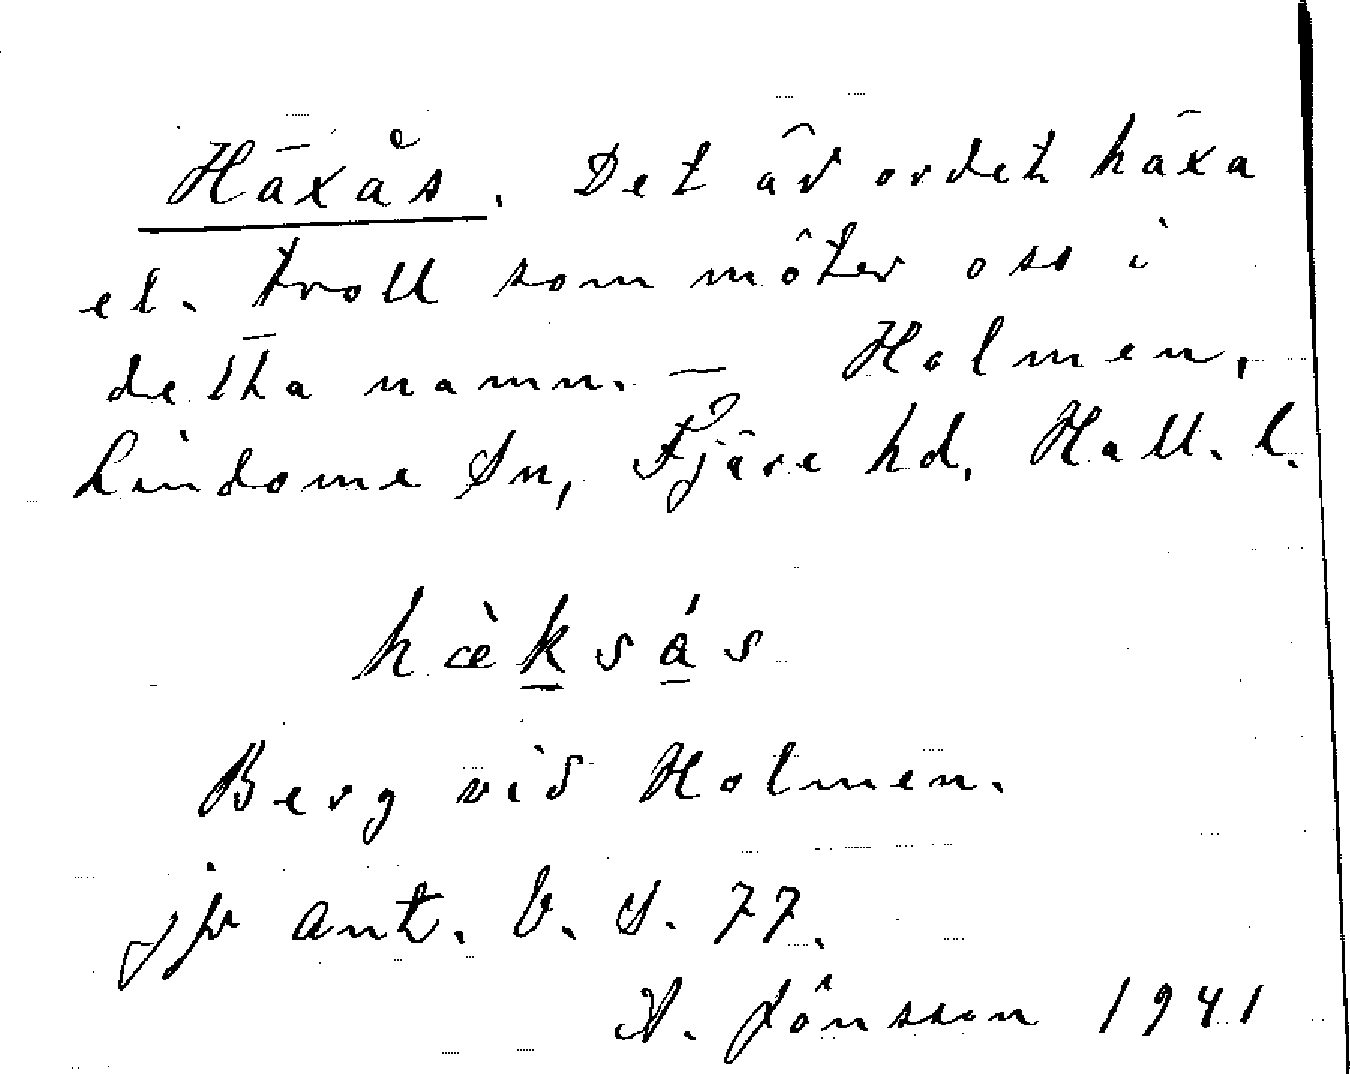 Häxås. Det är ordet häxa
el. troll som möter oss i
detta namn. — Holmen,
Lindome Sn, Fjäre hd. Hall. l.
hæ̀ksás
Berg vid Holmen.
jfr ant. b. S. 77.
A. Jönsson 1941